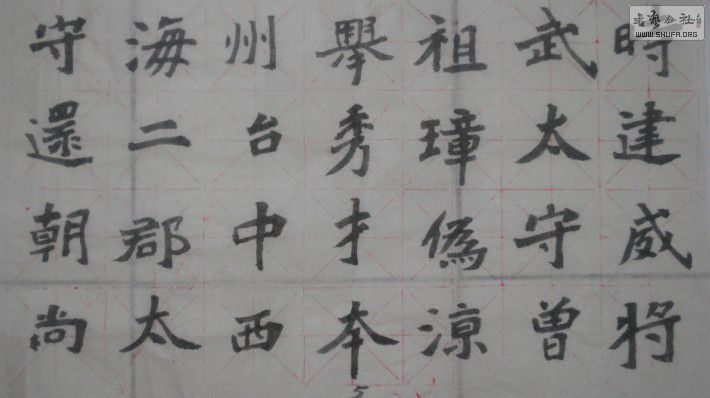 時建威将
武太守曽
祖璋偽涼
舉秀才本
州台中西
海二郡太
守還朝尚
WWW.SHUFA.ORG